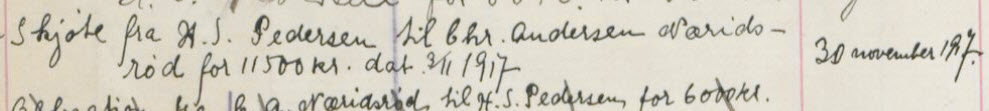 Skjøte fra H. S. Pedersen til Chr. Andersen Nærids-
rød for 11500 kr. dat. 3/11 1917
30 november 1917.
Næridsrød til H. S. Pedersen, for 6000 kr.